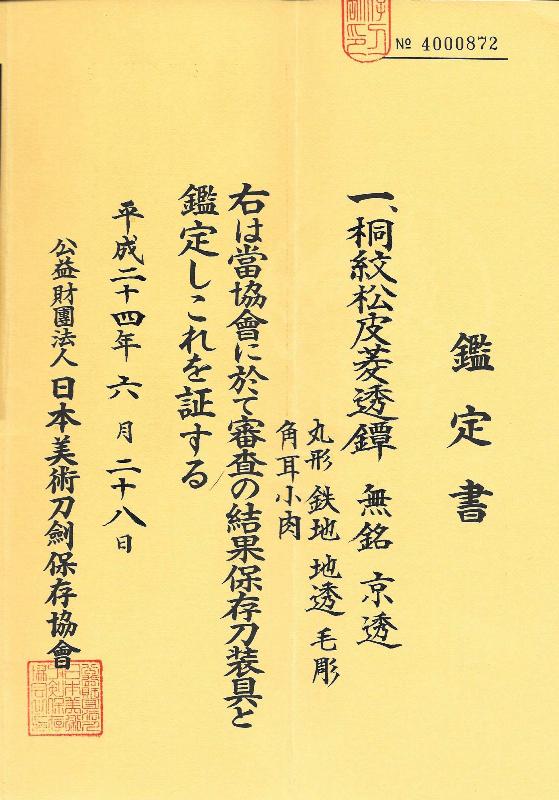 № 4000872
鑑定書
一、桐紋松皮菱透鐔 無銘 京透
丸形 鉄地 地透 毛彫
角耳小肉
右は當協會に於て審査の結果保存刀装具と
鑑定しこれを証する
平成二十四年 六月二十八日
公益財團法人 日本美術刀劍保存協會